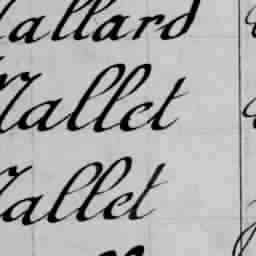 Mallard
Mallet
Mallet